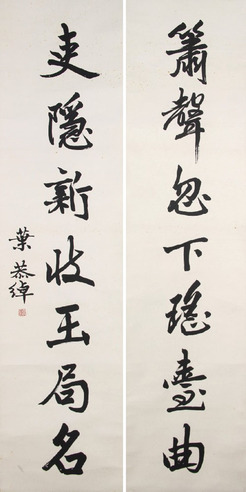 簫聲忽下瑤臺曲
吏隱新收玉局名
葉恭綽